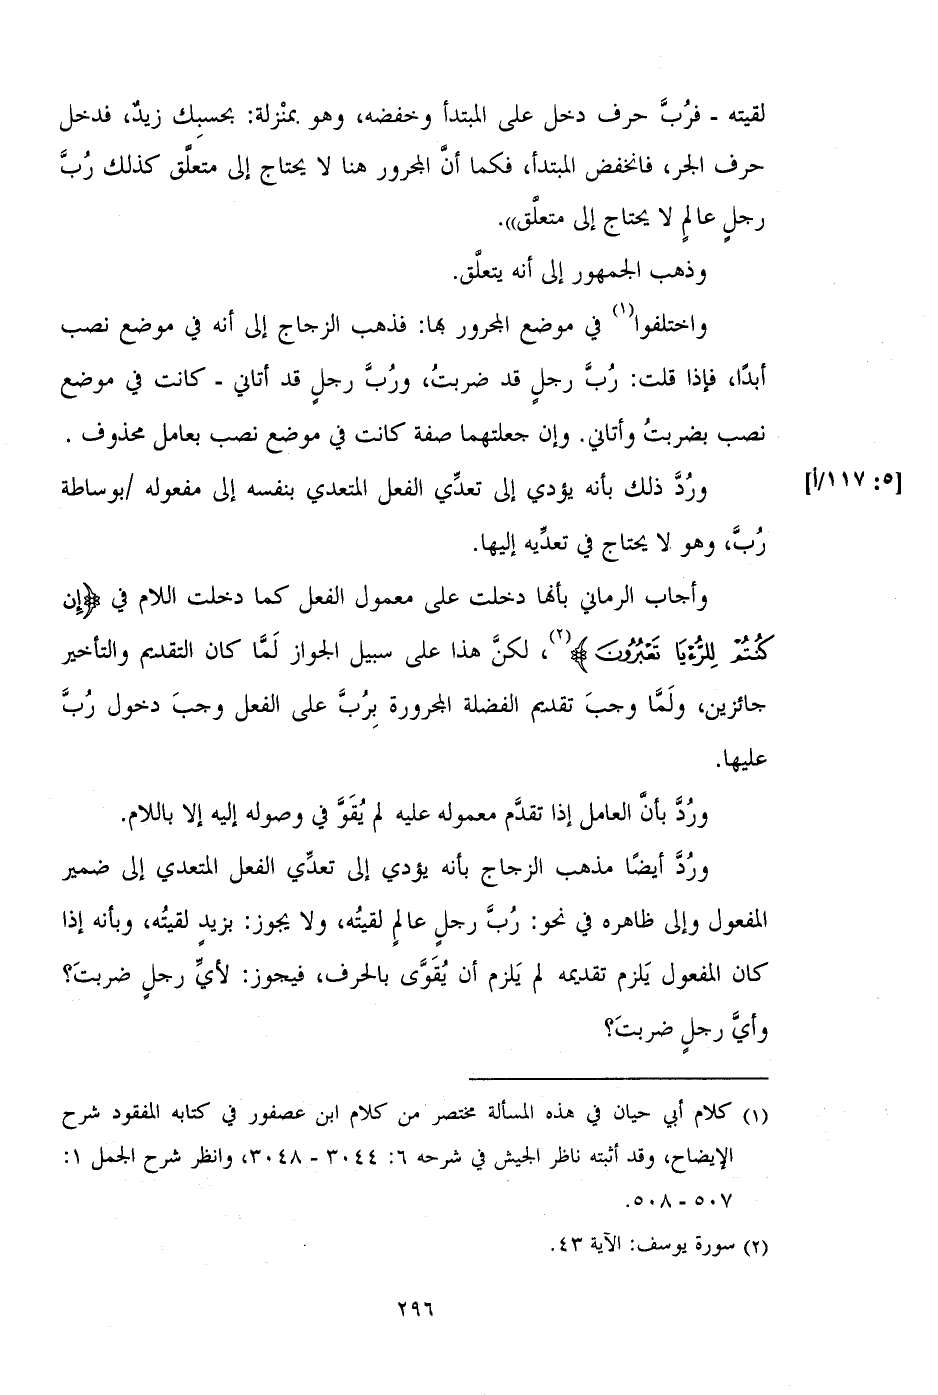 لقيته - فرُبَّ حرف دخل على المبتدأ وخفضه، وهو بمنْزلة: بحسبِك زيدٌ، فدخل
حرف الجر، فانخفض المبتدأ، فكما أنَّ المجرور هنا لا يحتاج إلى متعلَّق كذلك رُبَّ
رجلٍ عالمٍ لا يحتاج إلى متعلَّق)).
وذهب الجمهور إلى أنه يتعلَّق.
واختلفوا(١) في موضع المجرور بها: فذهب الزجاج إلى أنه في موضع نصب
أبدًا، فإذا قلت: رُبَّ رجلٍ قد ضربتُ، ورُبَّ رجلٍ قد أتاني - كانت في موضع
نصب بضربتُ وأتاني. وإن جعلتهما صفة كانت في موضع نصب بعامل محذوف .
ورُدَّ ذلك بأنه يؤدي إلى تعدِّي الفعل المتعدي بنفسه إلى مفعوله /بوساطة [٥: ١١٧/أ]
رُبَّ، وهو لا يحتاج في تعدِّيه إليها.
وأجاب الرماني بأنها دخلت على معمول الفعل كما دخلت اللام في ﴿إِن
كُنتُمْ لِلرُّءْيَا تَعْبُرُونَ﴾(٢)، لكنَّ هذا على سبيل الجواز لَمَّا كان التقديم والتأخير
جائزين، ولَمَّا وجبَ تقديم الفضلة المجرورة بِرُبَّ على الفعل وجبَ دخول رُبَّ
عليها.
ورُدَّ بأنَّ العامل إذا تقدَّم معموله عليه لم يُقَوَّ في وصوله إليه إلا باللام.
ورُدَّ أيضًا مذهب الزجاج بأنه يؤدي إلى تعدِّي الفعل المتعدي إلى ضمير
المفعول وإلى ظاهره في نحو: رُبَّ رجلٍ عالمٍ لقيتُه، ولا يجوز: بزيدٍ لقيتُه، وبأنه إذا
كان المفعول يَلزم تقديمه لم يَلزم أن يُقَوَّى بالحرف، فيجوز: لأيِّ رجلٍ ضربتَ؟
وأيَّ رجلٍ ضربتَ؟
(١) كلام أبي حيان في هذه المسألة مختصر من كلام ابن عصفور في كتابه المفقود شرح
الإيضاح، وقد أثبته ناظر الجيش في شرحه ٦: ٣٠٤٤ - ٣٠٤٨، وانظر شرح الجمل ١:
٥٠٧ - ٥٠٨.
(٢) سورة يوسف: الآية ٤٣.
٢٩٦